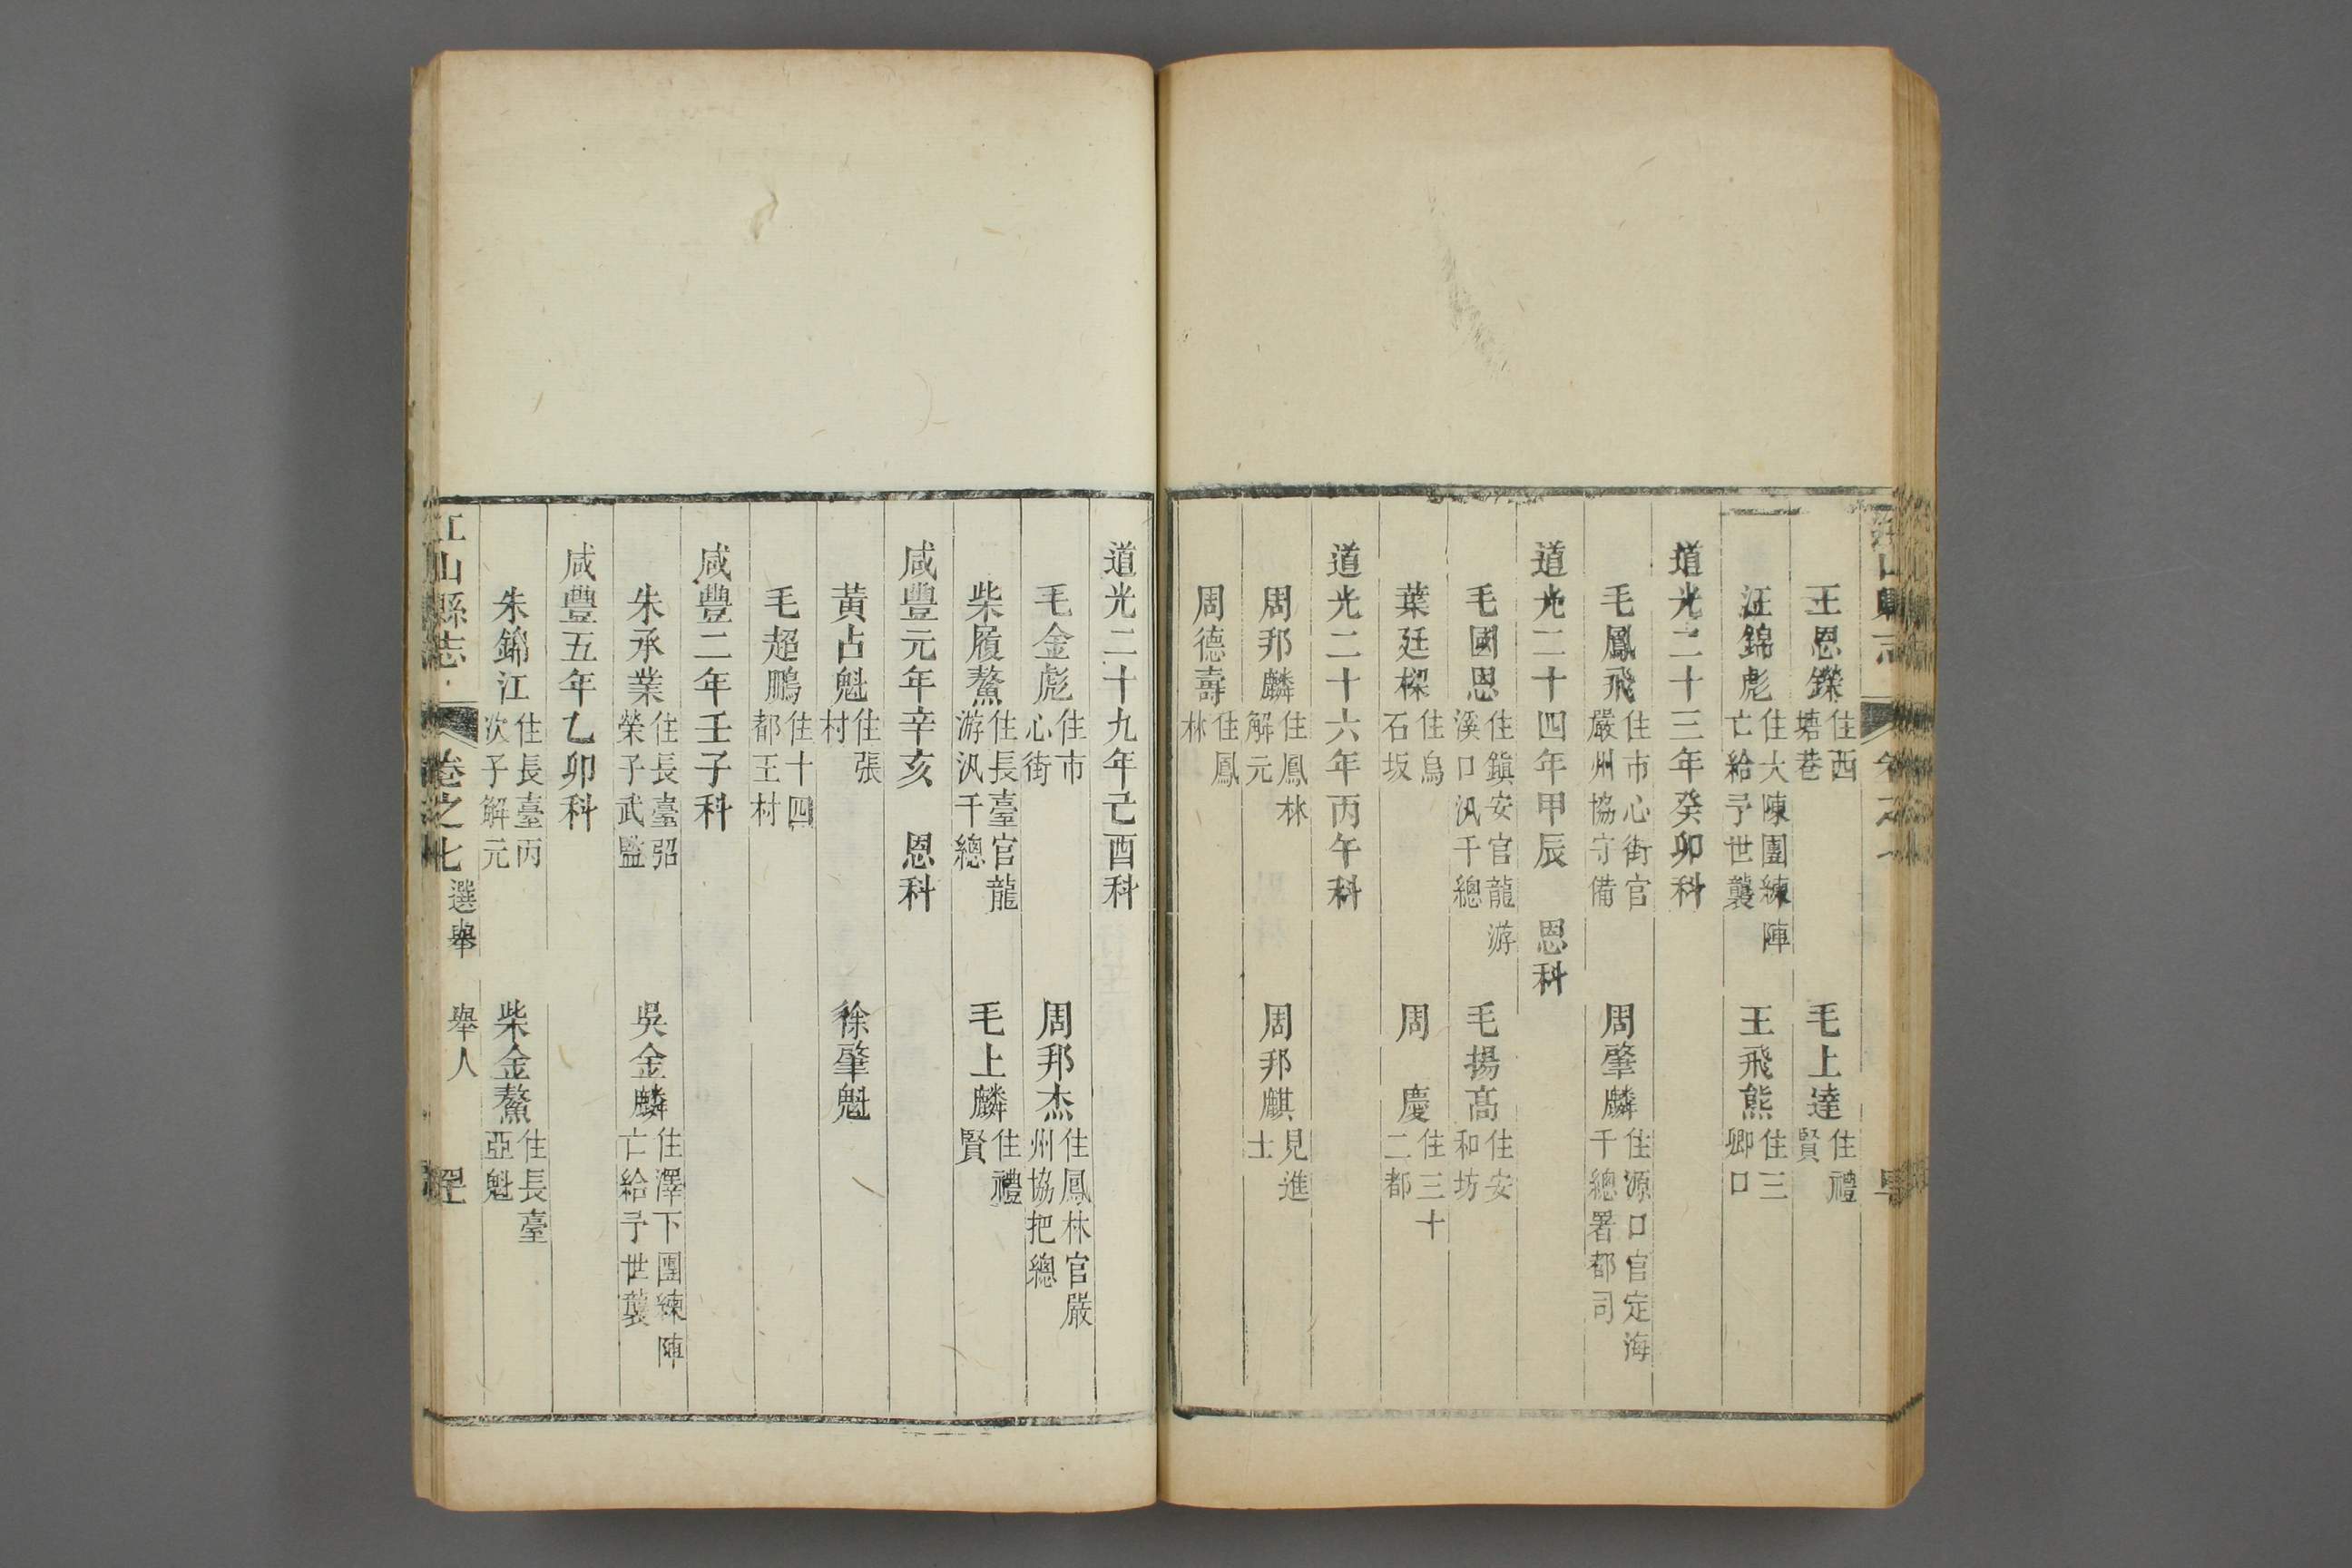 王恩鑅住西塘巷　毛上達住禮賢
汪錦彪住大陳團練陣亡給予世襲　王飛熊住三卿口
道光二十三年癸卯科
毛鳳飛住市心街官嚴州協守備　周肇麟住源口官定海千總署都司
道光二十四年甲辰　恩科
毛國恩住鎮安官龍游溪口汛千總　毛揚高住安和坊
葉廷樑住烏石坂　周　慶住三十二都
道光二十六年丙午科
周邦麟住鳳林解元　周邦麒見進士
周德壽住鳳林
道光二十九年己酉科
毛金彪住市心街　周邦杰住鳳林官嚴州協把總
柴履鰲住長臺官龍游汛千總　毛上麟住禮賢
咸豐元年辛亥　恩科
黃占魁住張村　徐肇魁
毛超鵬住十四都王村
咸豐二年壬子科
朱承業住長臺弨榮子武監　吳金麟住澤下團練陣亡給予世襲
咸豐五年乙卯科
朱錦江住長臺丙次子解元　柴金鰲住長臺亞魁
江山縣志　卷之七　選舉　舉人